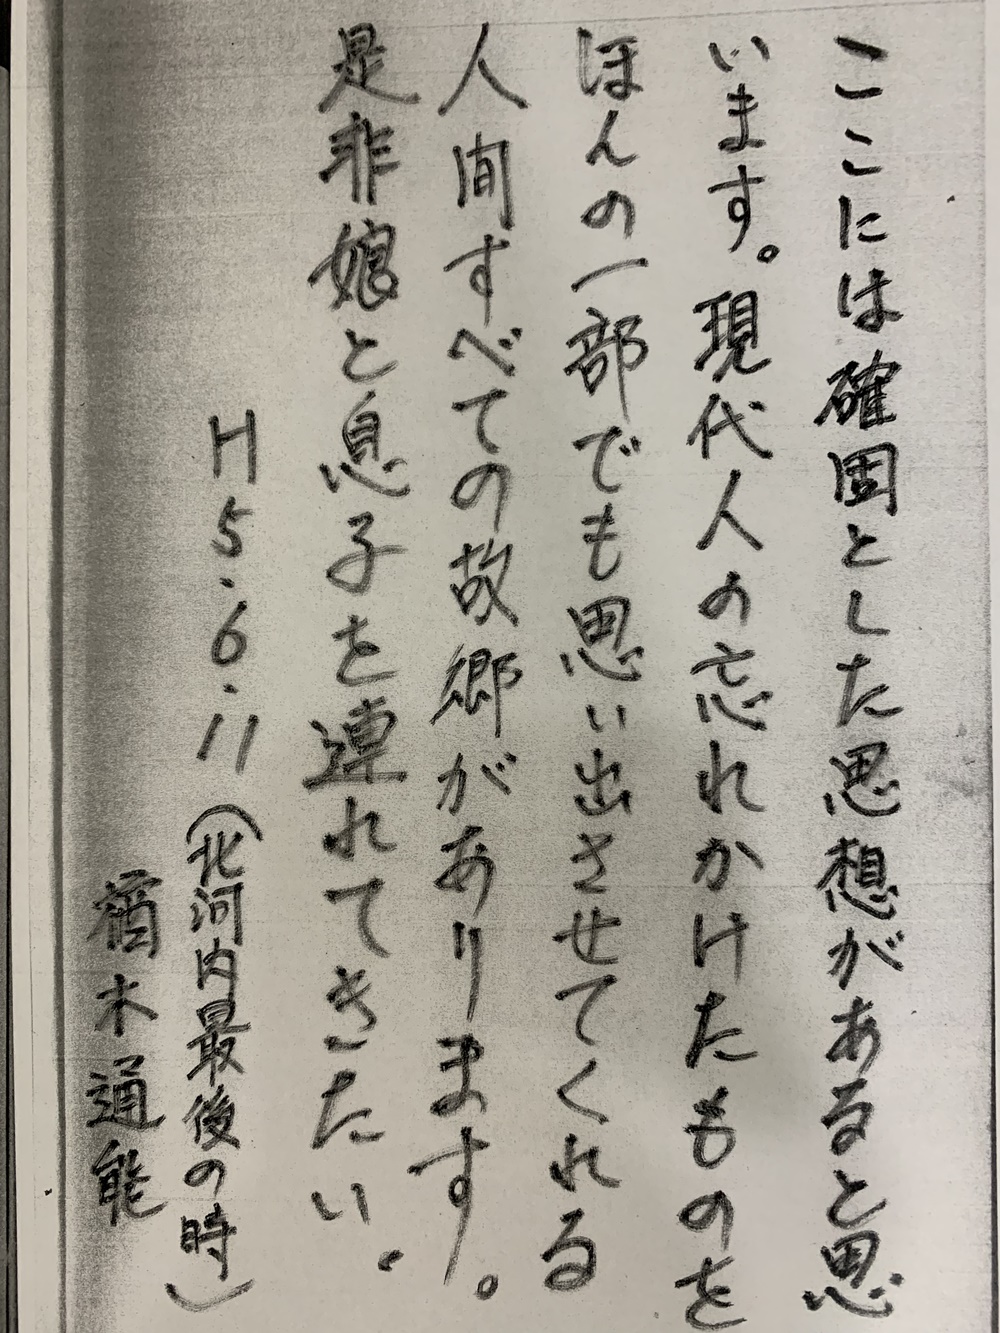 ここには確固とした思想があると思
います。現代人の忘れかけたものを
ほんの一部でも思い出させてくれる
人間すべての故郷があります。
是非娘と息子を連れてきたい.
H5.6.11(北河内最後の時)
木通能